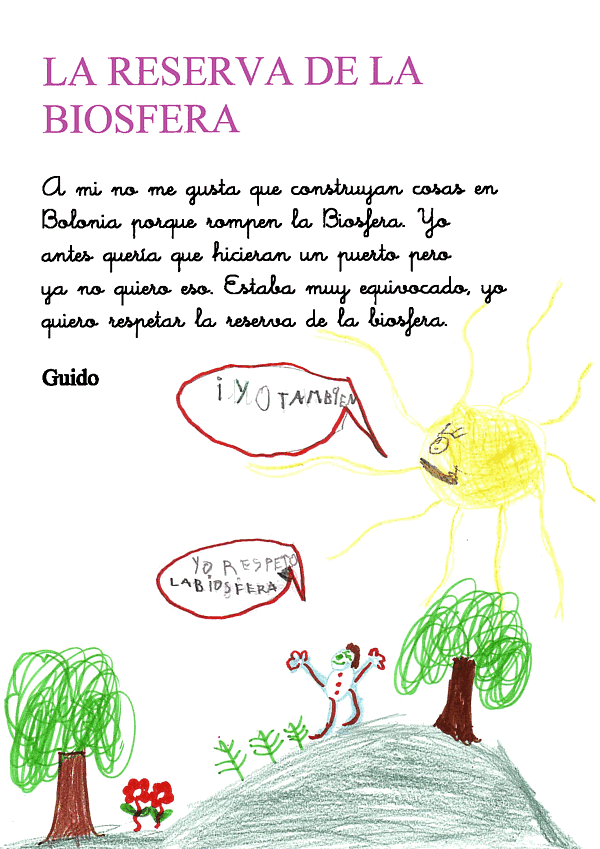 LA RESERVA DE LA
BIOSFERA
A mi no me gusta que construyan cosas en
Bolonia porque rompen la Biosfera. Yo
antes quería que hicieran un puerto pero
ya no quiero eso. Estaba muy equivocado, yo
quiero respetar la reserva de la biosfera.
Guido
¡YO TAMBIEN
YO RESPETO
LA BIOSFERA